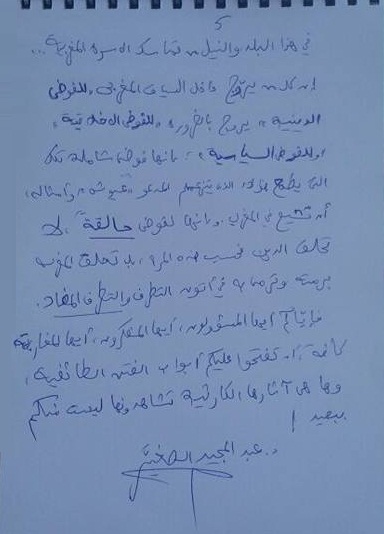 5
في هذا البلد والنيل من تماسك الأسرة المغربية...
إن كل من يروّج داخل السياق المغربي للفوضى
الدينية يروج بالضرورة للفوضى الأخلاقية
وللفوضى السياسية، بأنها فوضى شاملة تلك
التي يطمح هؤلاء الذين يتزعمهم المدعو وأمثاله،
أن تشيع في المغرب. وإنها لفوضى حالقة، لا
تحلق الدين فحسب هذه المرة، بل تحلق المغرب
برمته وترمي به في أتون التطرف والتطرف المضاد.
فإياكم أيها المسؤولون، أيها المفكرون، أيها المغاربة
كافة، أن تفتحوا عليكم أبواب الفتن الطائفية،
وها هي آثارها الكارثية تشاهدونها ليست منكم
ببعيد!
د. عبد المجيد الصغير